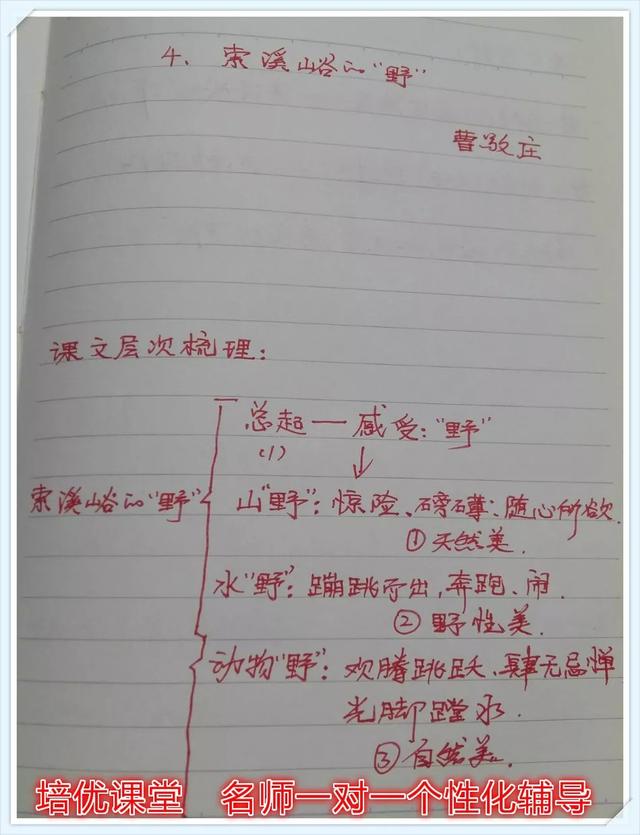 4、索溪峪的“野”
曹敬庄
课文层次梳理：
总起—感受：“野”
(1)
索溪峪的“野”
山“野”：惊险、磅礴；随心所欲.
①天然美.
水“野”：蹦跳而出，奔跑、闹.
②野性美.
动物“野”：欢腾跳跃、肆无忌惮
光脚蹚水.
③自然美.
培优课堂 名师一对一个性化辅导